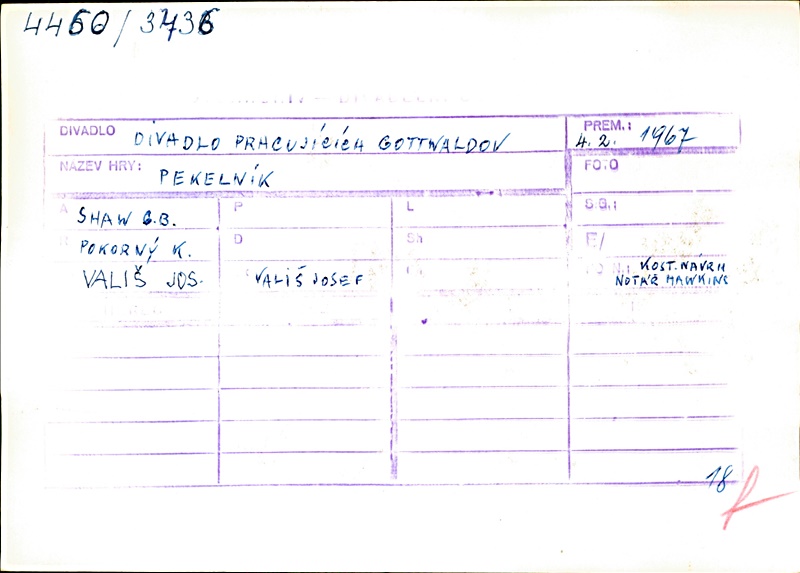 4460/3736
DIVADLO DIVADLO PRACUJÍCÍCH GOTTWALDOV PREM.: 4. 2. 1967
NÁZEV HRY: PEKELNÍK FOTO
A SHAW G.B. P L S.G.:
POKORNÝ K. D Sh E/
VALIŠ JOS. VALIŠ JOSEF KOST. NÁVRH
NOTÁŘ HAWKINS
18